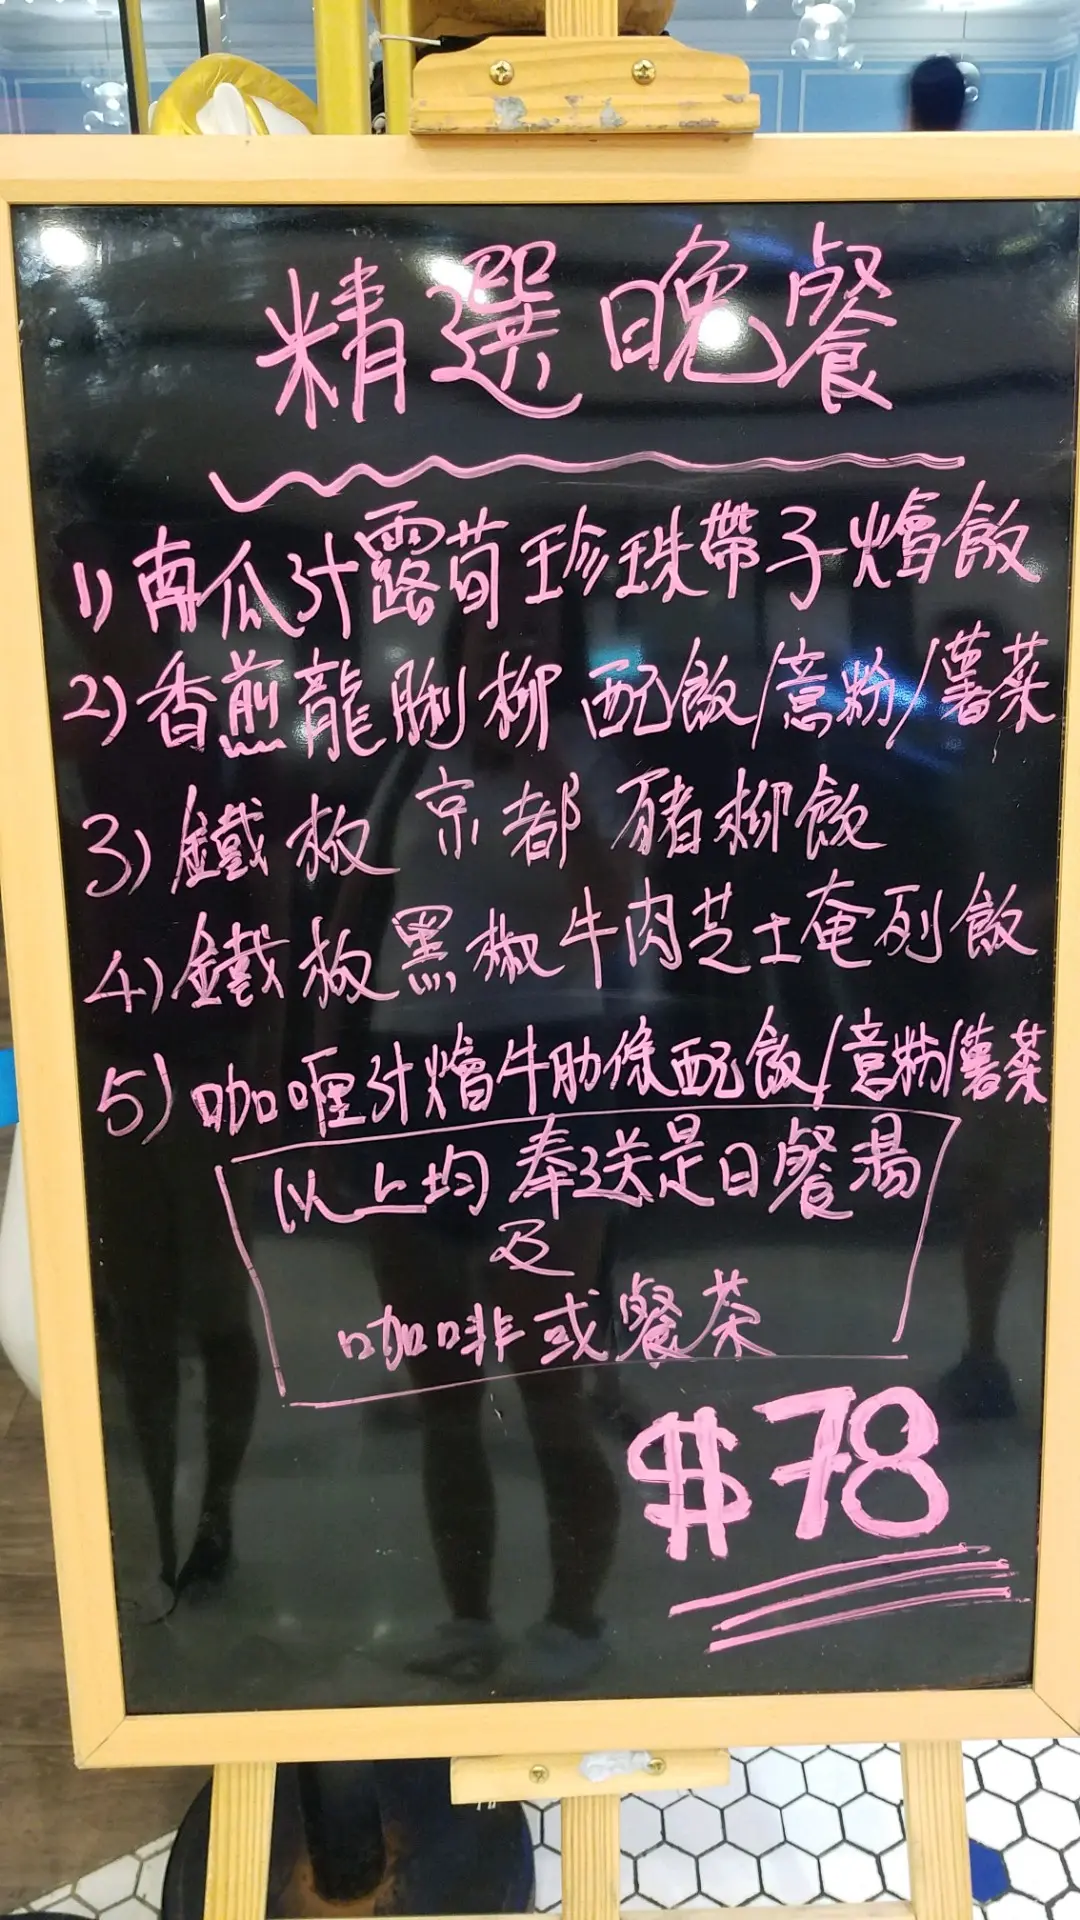 精選晚餐
1) 南瓜汁露荀珍珠帶子燴飯
2) 香煎龍脷柳 配飯/意粉/薯菜
3) 鐵板 京都 豬柳飯
4) 鐵板黑椒牛肉芝士奄列飯
5) 咖喱汁燴牛肋條配飯/意粉/薯菜
以上均奉送是日餐湯
及
咖啡或餐茶
$78